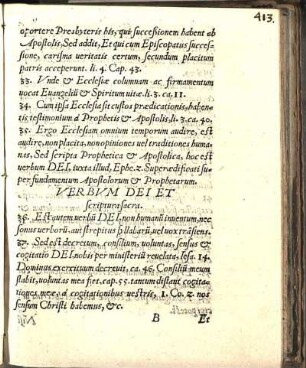 413.
oportere Presbyteris his, qui successionem habent ab
Apostolis, Sed addit, Et qui cum Episcopatus succes-
sione, carisma veritatis certum, secundum placitum
patris acceperunt. li. 4. Cap. 43.
33. Vnde & Ecclesiæ columnam ac firmamentum
vocat Euangelii & Spiritum vitæ. li. 3. ca. 11.
34. Cum ipsa Ecclesia sit custos prædicationis, haben-
tis testimonium à Prophetis & Apostolis, li. 3. ca. 40.
35. Ergo Ecclesiam omnium temporum audire, est
audire, non placita, non opiniones vel traditiones huma-
nas, Sed scripta Prophetica & Apostolica, hoc est
verbum DEI, iuxta illud, Ephe. 2. Superedificati su-
per fundamentum Apostolorum & Prophetarum.
VERBVM DEI ET
scriptura sacra.
36. Est autem verbũ DEI, non humanũ inuentum, nec
sonus verborũ, aut strepitus syllabarũ, vel vox trãsiens.
&c. Sed est decretum, consilium, voluntas, sensus &
cogitatio DEI, nobis per ministeriũ reuelata, Iesa. 14.
Dominus exercituum decreuit. ca. 46. Consiliũ meum
stabit, voluntas mea fiet, cap. 55. tantum distant cogita-
tiones meæ à cogitationibus vestris, 1. Co. 2. nos
sensum Christi habemus, &c.
B Et